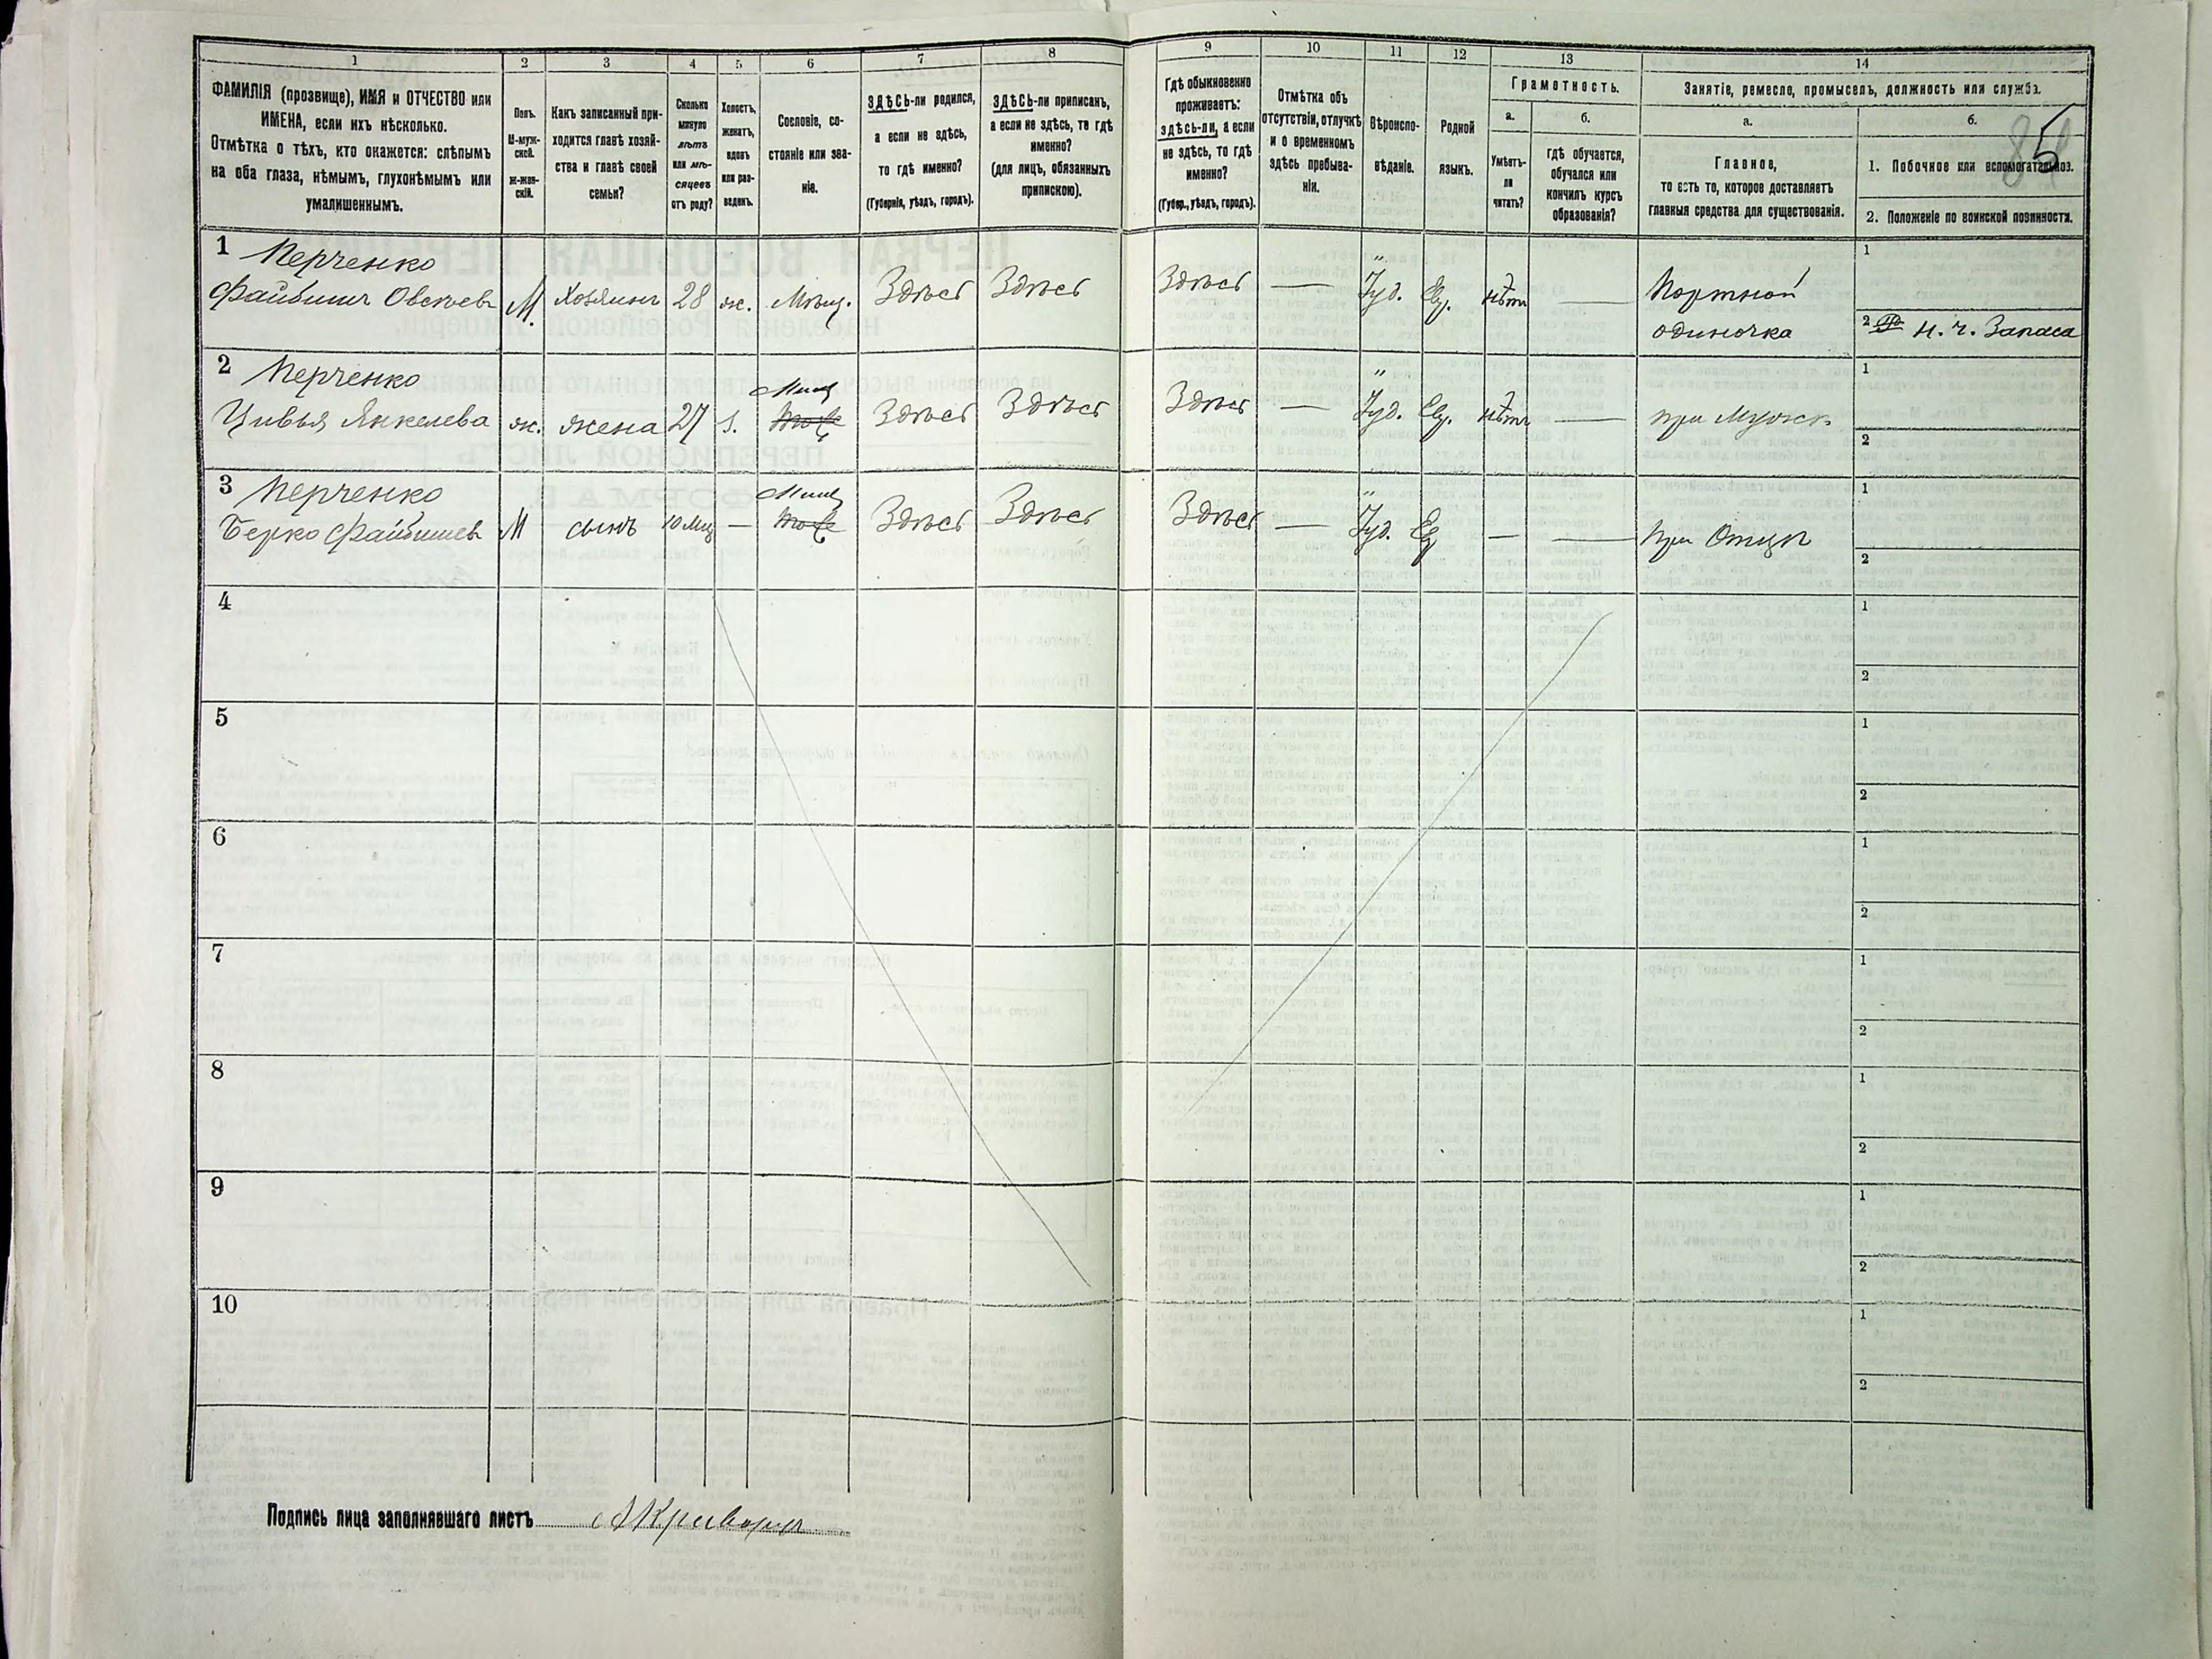 1 2 3 4 5 6 7 8 9 10 11 12 13 14
ФАМИЛІЯ (прозвище), ИМЯ и ОТЧЕСТВО или
ИМЕНА, если ихъ нѣсколько.
Отмѣтка о тѣхъ, кто окажется: слѣпымъ
на оба глаза, нѣмымъ, глухонѣмымъ или
умалишеннымъ.
Полъ.
М-муж-
ской.
Ж-жен-
скій.
Какъ записанный при-
ходится главѣ хозяй-
ства и главѣ своей
семьи?
Сколько
минуло
лѣтъ
или мѣ-
сяцевъ
отъ роду?
Холостъ,
женатъ,
вдовъ
или раз-
веденъ.
Сословіе, со-
стояніе или зва-
ніе.
ЗДѢСЬ-ли родился,
а если не здѣсь,
то гдѣ именно?
(Губернія, уѣздъ, городъ).
ЗДѢСЬ-ли приписанъ,
а если не здѣсь, то гдѣ
именно?
(для лицъ, обязанныхъ
припискою).
Гдѣ обыкновенно
проживаетъ:
здѣсь-ли, а если
не здѣсь, то гдѣ
именно?
(Губер., уѣздъ, городъ).
Отмѣтка объ
отсутствіи, отлучкѣ
и о временномъ
здѣсь пребыва-
ніи.
Вѣроиспо-
вѣданіе.
Родной
языкъ.
Грамотность.
а.
Умѣетъ-
ли
читать?
б.
гдѣ обучается,
обучался или
кончилъ курсъ
образованія?
Занятіе, ремесло, промыселъ, должность или служба.
а.
Главное,
то есть то, которое доставляетъ
главныя средства для существованія.
б.
5
1. Побочное или вспомогательное.
2. Положеніе по воинской повинности.
1 Перченко 1
Файбишъ Овсѣевъ М. Хозяинъ 28 ж. Мѣщ. Здѣсь Здѣсь Здѣсь — Іуд. Ев. нѣтъ — Портной
одиночка 2 н. ч. Запаса
2 Перченко Мѣщ 1
Цивья Янкелева ж. жена 27 з. тоже Здѣсь Здѣсь Здѣсь — Іуд. Ев. нѣтъ — при Мужѣ
2
3 Перченко Мѣщ 1
Берко Файбишев М сынъ 10 мѣц — тоже Здѣсь Здѣсь Здѣсь — Іуд. Ев — — при Отцѣ
2
4 1
2
5 1
2
6 1
2
7 1
2
8 1
2
9 1
2
10 1
2
Подпись лица заполнявшаго листъ